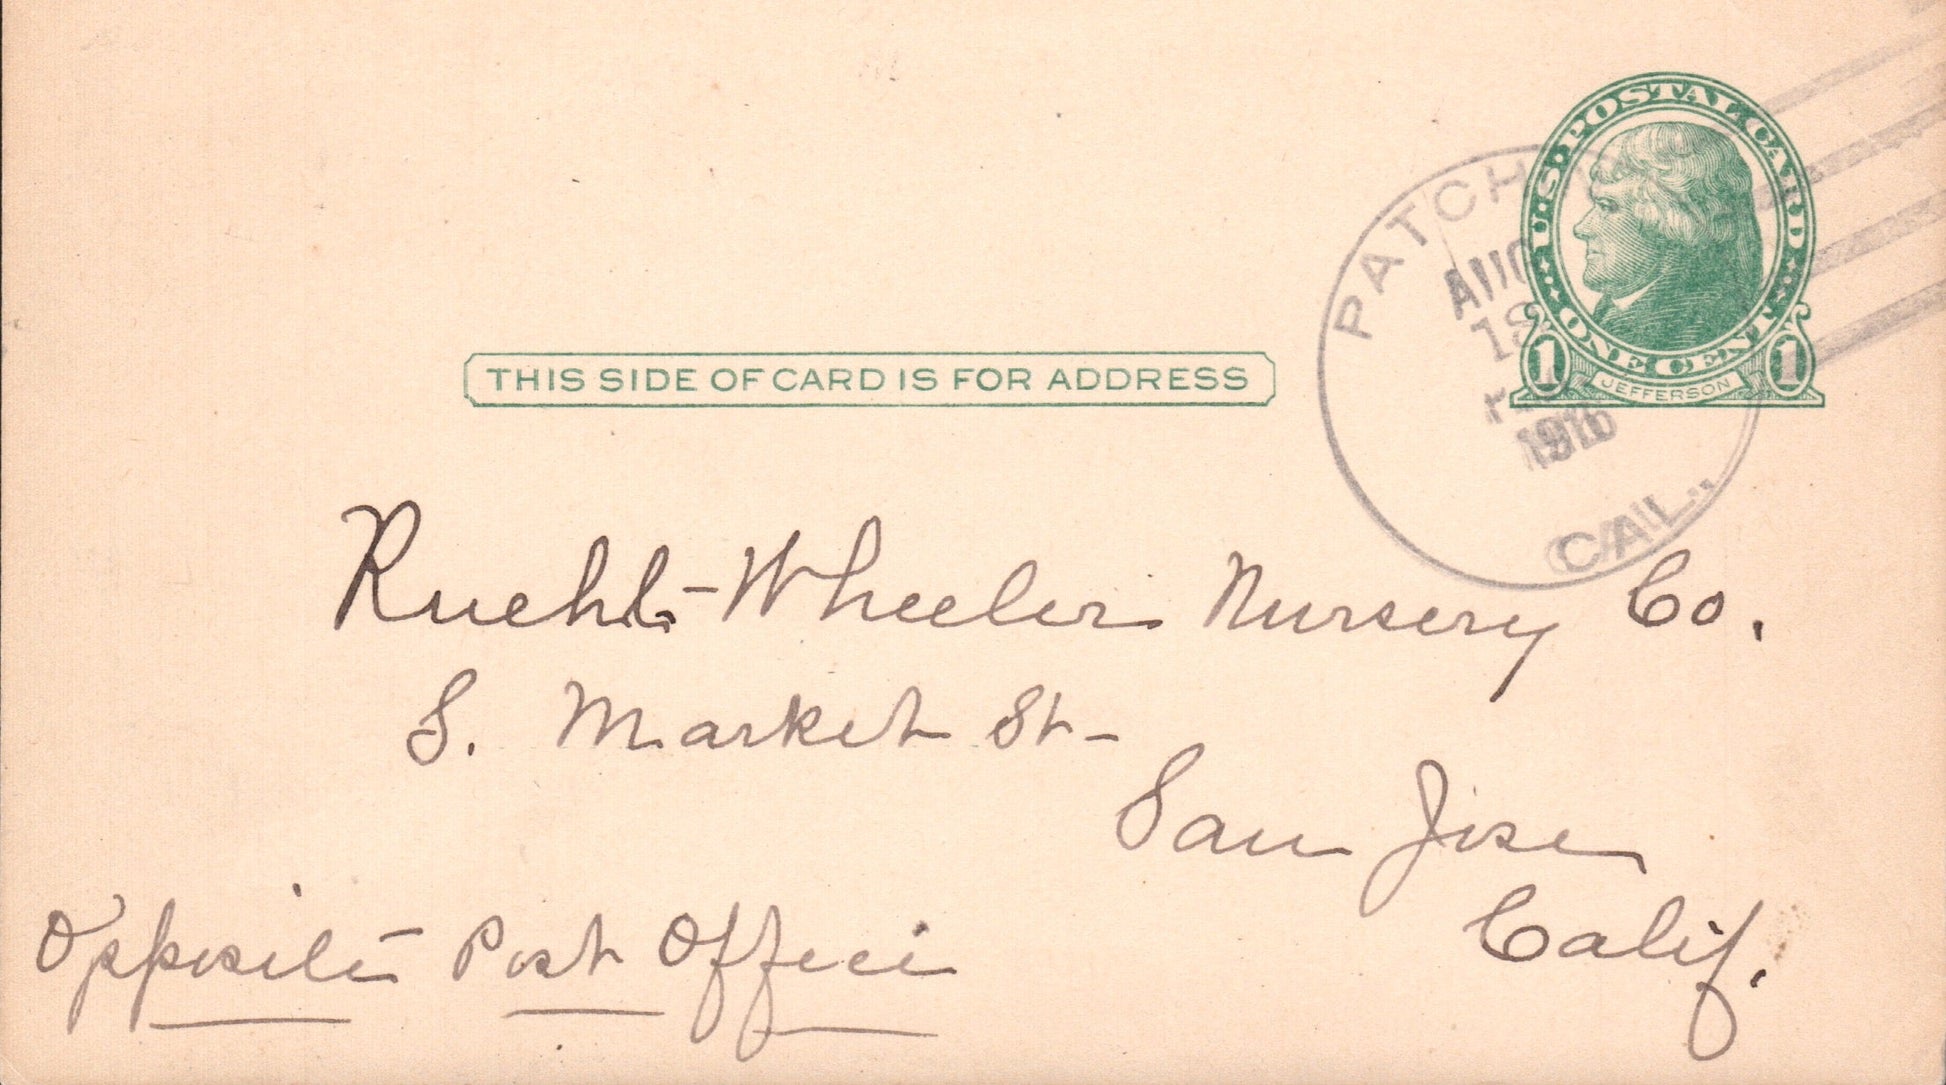 U.S. POSTAL CARD
ONE CENT
1 JEFFERSON 1
PATCH
AUG
1916
CAL.
THIS SIDE OF CARD IS FOR ADDRESS
Ruehl-Wheeler Nursery Co.
S. Market St-
San Jose
Calif.
Opposite Post Office